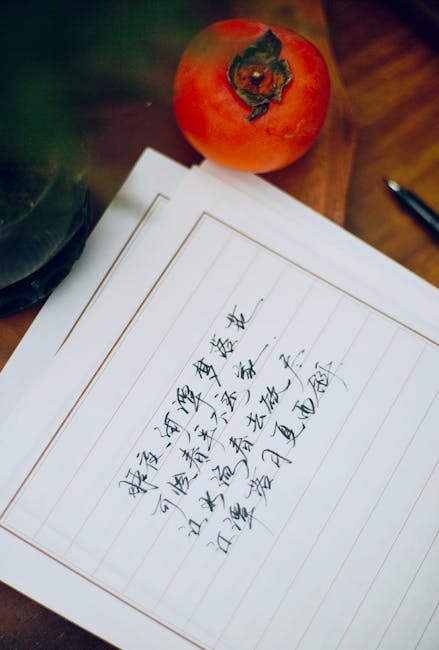 昨夜闲潭梦落花
可怜春半不还家
江水流春去欲尽
江潭落月复西斜